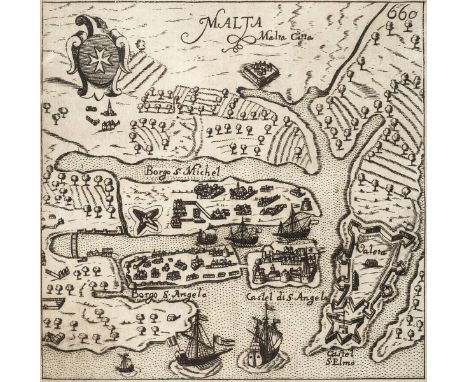 MALTA
Malta Citta
660
Borgo S. Michel
Valeta
Borgo S. Angelo
Castel di S. Angelo
Castel
S. Elmo